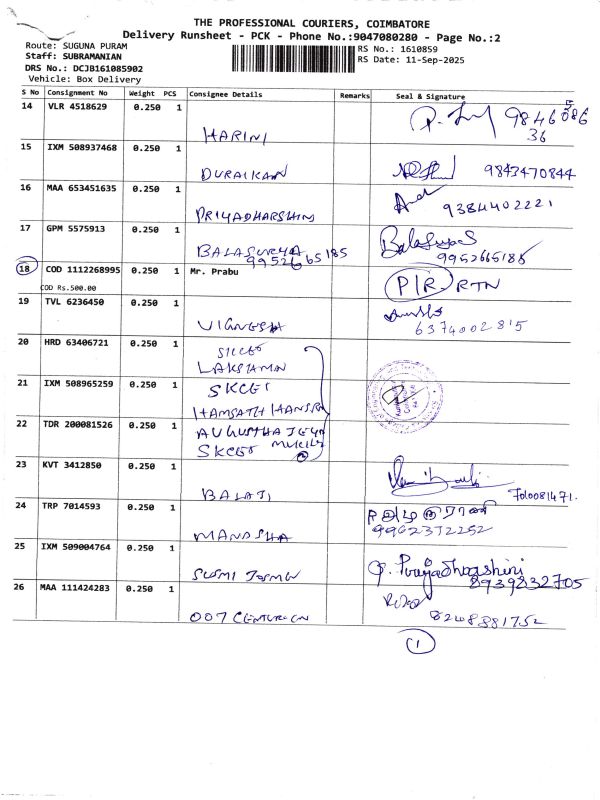 THE PROFESSIONAL COURIERS, COIMBATORE
Delivery Runsheet - PCK - Phone No.:9047080280 - Page No.:2
Route: SUGUNA PURAM
RS No.: 1610859
Staff: SUBRAMANIAN
RS Date: 11-Sep-2025
DRS No.: DCJB161085902
Vehicle: Box Delivery
S No Consignment No Weight PCS Consignee Details Remarks Seal & Signature
14 VLR 4518629 0.250 1
HARINI
36
15 IXM 508937468 0.250 1
DURAIKAN 9843470844
16 MAA 653451635 0.250 1
PRIYADHARSHINI 9384402221
17 GPM 5575913 0.250 1
BALASURYA BalaSuryaS
9952665185 9952665185
18 COD 1112268995 0.250 1 Mr. Prabu
COD Rs.500.00 PIR RTN
19 TVL 6236450 0.250 1
VIGNESH 6374002815
20 HRD 63406721 0.250 1
LAKSHMAN
21 IXM 508965259 0.250 1 SKCET
HAMSATH HANSRA
22 TDR 200081526 0.250 1 AUGUSTHA JEYA
SKCET
23 KVT 3412850 0.250 1
BALAJI 7010081471.
24 TRP 7014593 0.250 1
MANOSHA 9962372252
25 IXM 509004764 0.250 1
SUSMI P. Priyadharshini
8939832705
26 MAA 111424283 0.250 1
007 8248881752
1